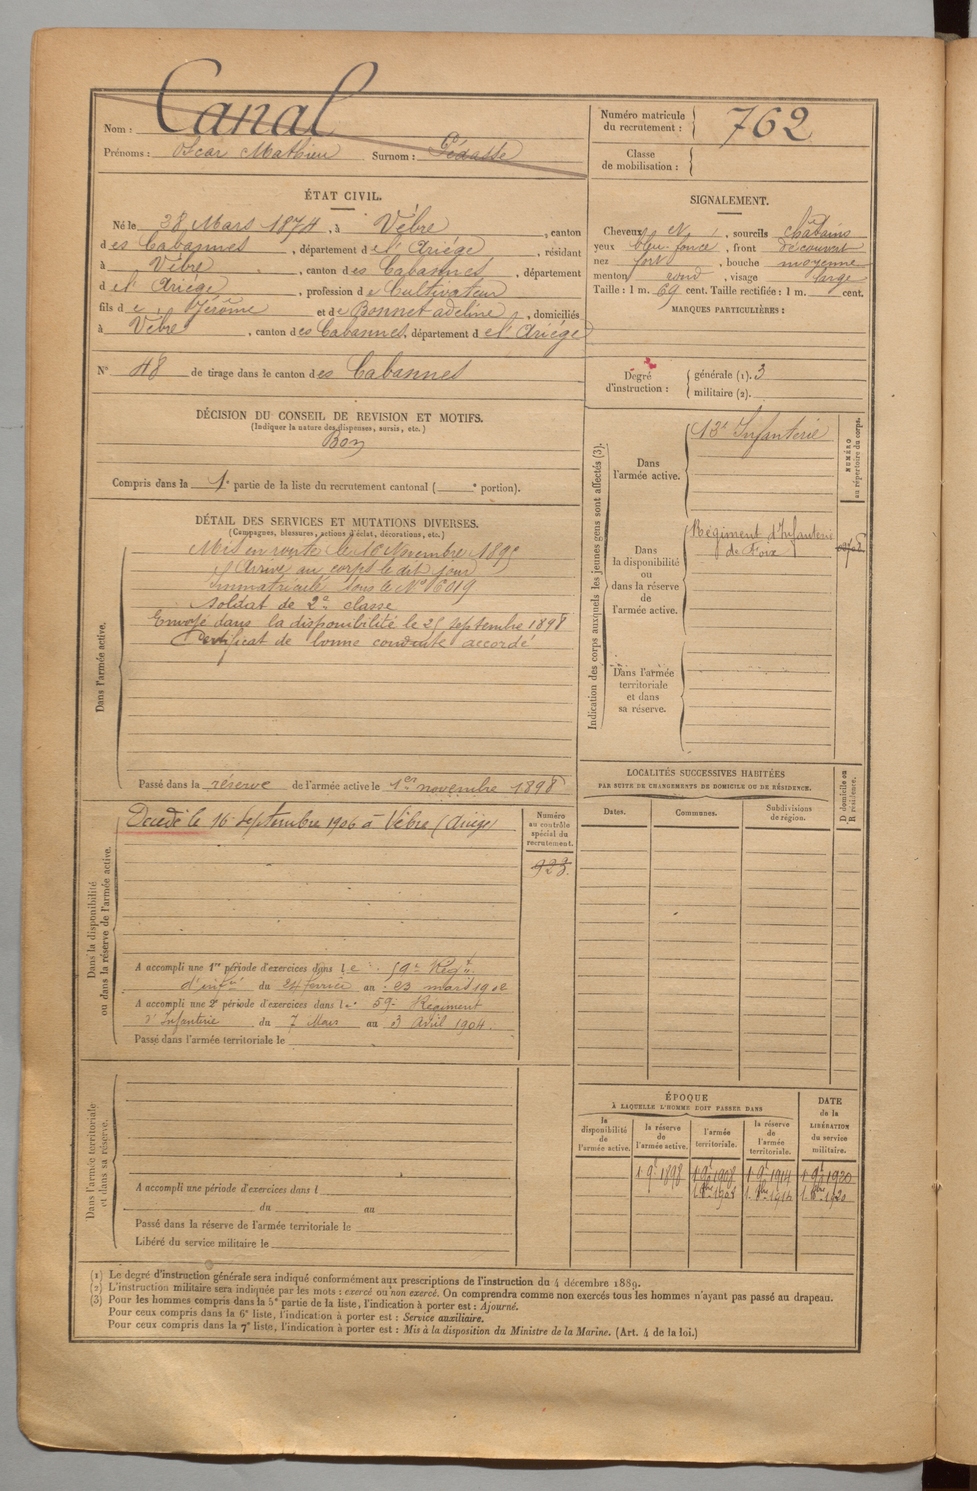 Nom : Canal
Prénoms : Oscar Mathieu Surnom : Pédasse
Numéro matricule
du recrutement : 762
Classe
de mobilisation :
ÉTAT CIVIL.
Né le 28 Mars 1874, à Vèbre, canton
des Cabannes, département de l'Ariège, résidant
à Vèbre, canton des Cabannes, département
de l'Ariège, profession de Cultivateur
fils de Jérôme et de Bonnet adeline, domiciliés
à Vèbre, canton des Cabannes, département de l'Ariège
N° 48 de tirage dans le canton des Cabannes
SIGNALEMENT.
Cheveux , sourcils chatains
yeux bleu foncé, front découvert
nez fort, bouche moyenne
menton rond, visage large
Taille : 1 m. 69 cent. Taille rectifiée : 1 m. cent.
MARQUES PARTICULIÈRES :
Degré
d'instruction :
générale (1). 3
militaire (2).
DÉCISION DU CONSEIL DE REVISION ET MOTIFS.
(Indiquer la nature des dispenses, sursis, etc.)
Bon
Compris dans la 1e partie de la liste du recrutement cantonal ( e portion).
DÉTAIL DES SERVICES ET MUTATIONS DIVERSES.
(Campagnes, blessures, actions d'éclat, décorations, etc.)
Dans l'armée active.
Mis en route le 16 Novembre 1895
Arrivé au corps le dit jour
Immatriculé sous le N° 6019
Soldat de 2e classe
Envoyé dans la disponibilité le 25 septembre 1898
Certificat de bonne conduite accordé
Passé dans la réserve de l'armée active le 1er novembre 1898
Indication des corps auxquels les jeunes gens sont affectés (3).
NUMÉRO
au répertoire du corps.
Dans
l'armée active.
13e Infanterie
Dans
la disponibilité
ou
dans la réserve
de
l'armée active.
Régiment d'Infanterie
de Foix
Dans l'armée
territoriale
et dans
sa réserve.
LOCALITÉS SUCCESSIVES HABITÉES
PAR SUITE DE CHANGEMENTS DE DOMICILE OU DE RÉSIDENCE.
Dates. Communes. Subdivisions
de région.
D domicile ou
R résidence.
Dans la disponibilité
ou dans la réserve de l'armée active.
Décédé le 16 septembre 1906 à Vèbre (Ariège)
Numéro
au contrôle
spécial du
recrutement.
923
A accompli une 1re période d'exercices dans le 59e Régt
d'infie du 24 fevrier au 23 mars 1902
A accompli une 2e période d'exercices dans le 59e Régiment
d'Infanterie du 7 Mars au 3 Avril 1904.
Passé dans l'armée territoriale le
Dans l'armée territoriale
et dans sa réserve.
A accompli une période d'exercices dans l
du au
Passé dans la réserve de l'armée territoriale le
Libéré du service militaire le
ÉPOQUE
À LAQUELLE L'HOMME DOIT PASSER DANS
DATE
de la
LIBÉRATION
du service
militaire.
la
disponibilité
de
l'armée active.
la réserve
de
l'armée active.
l'armée
territoriale.
la réserve
de
l'armée
territoriale.
1 9e 1898 1 9e 1908 1 9e 1914 1 9e 1920
(1) Le degré d'instruction générale sera indiqué conformément aux prescriptions de l'instruction du 4 décembre 1889.
(2) L'instruction militaire sera indiquée par les mots : exercé ou non exercé. On comprendra comme non exercés tous les hommes n'ayant pas passé au drapeau.
(3) Pour les hommes compris dans la 5e partie de la liste, l'indication à porter est : Ajourné.
Pour ceux compris dans la 6e liste, l'indication à porter est : Service auxiliaire.
Pour ceux compris dans la 7e liste, l'indication à porter est : Mis à la disposition du Ministre de la Marine. (Art. 4 de la loi.)